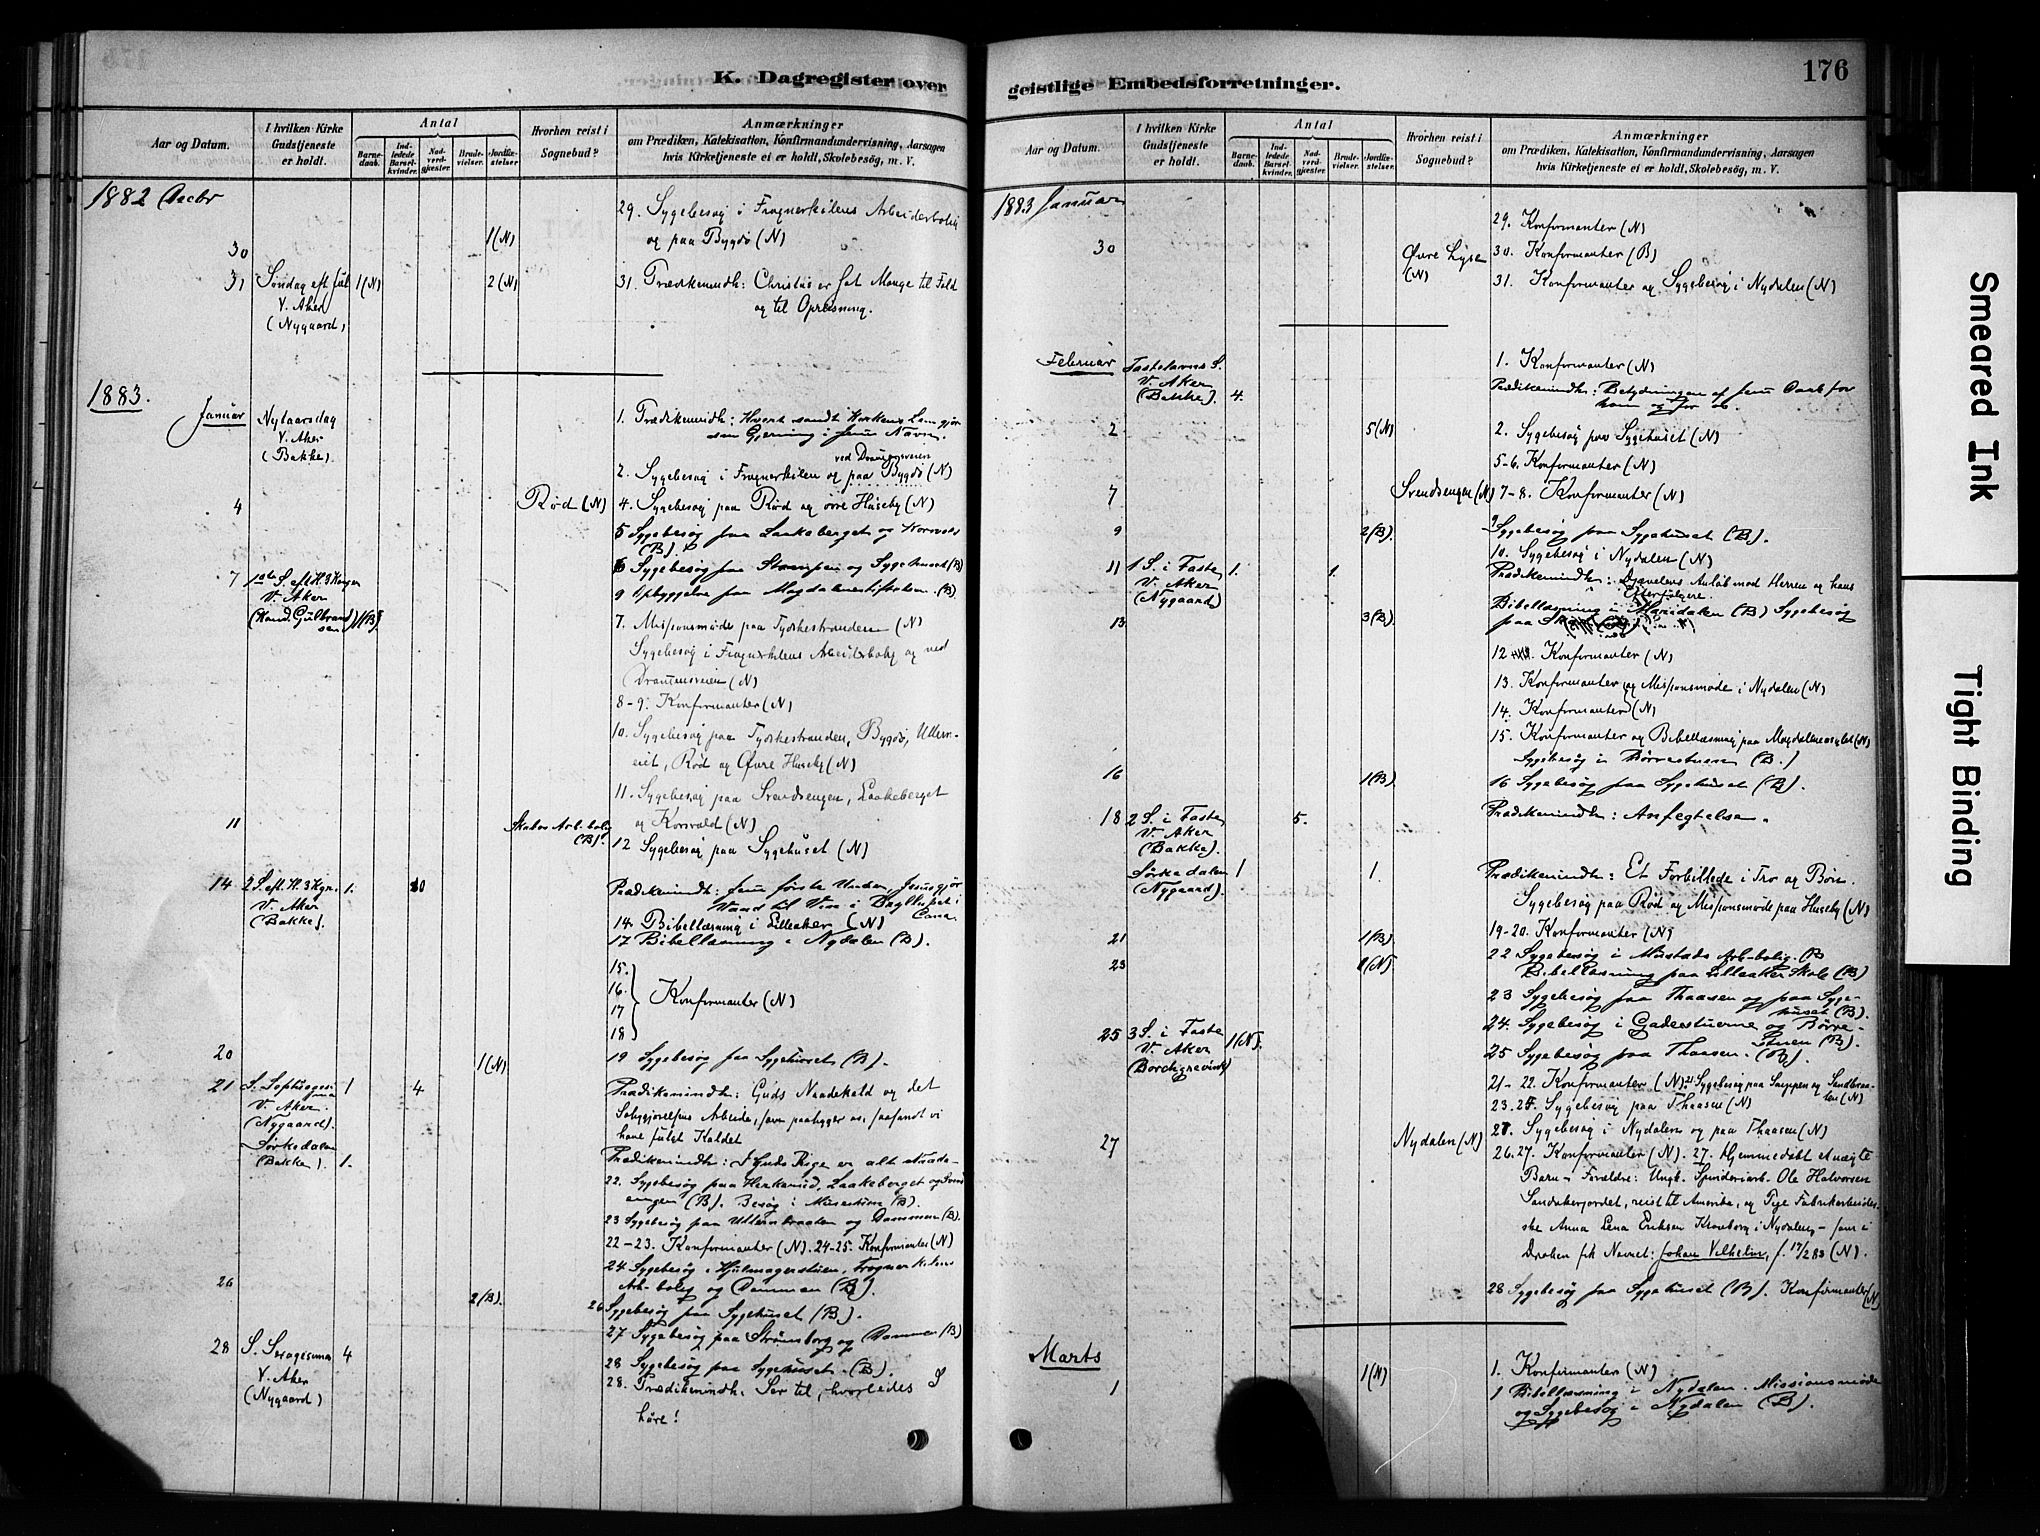 K. Dagregister over
Aar og Datum.
I hvilken Kirke
Gudstjeneste
er holdt.
Antal
Barne-
daab.
Ind-
ledede
Barsel-
kvinder.
Nad-
verd-
gjæster.
Brude-
vielser.
Jordfæ-
stelser.
Hvorhen reist i
Sognebud?
Anmærkninger
om Prædiken, Katekisation, Konfirmandundervisning, Aarsagen
hvis Kirketjeneste ei er holdt, Skolebesøg, m. V.
1882 Decbr
29. Sygebesøg i Frognerkilens Arbeiderbolig
og paa Bygdø (N)
30 1 (N)
31 Søndag eft Jul 1 (N) 2 (N) 31. Prædikenindh: Christus er sat Mange til Fald
V. Aker og til Opreisning.
(Nygaard)
1883.
Januar Nytaarsdag 1. Prædikenindh:
V. Aker Gjerning i Jesu Navn.
(Bakke)
ved Dramensveien
2. Sygebesøg i Frognerkilen og paa Bygdø (N)
4 Rød (N) 4. Sygebesøg paa Rød og øvre Huseby (N)
5 Sygebesøg paa Laakeberget og Korsvold
(B).
6 Sygebesøg paa Stampen og Sygehuset (B)
7 1ste S. eft H. 3 Konger 9 Opbyggelse paa Magdalenestiftelsen. (B)
V. Aker
(Kand. Gulbrand 1 (B)
sen)
7. Missionsmøde paa Tyskestranden (N)
Sygebesøg i Frognerkilens Arbeiderbolig og ved
Dramensveien (N)
8-9. Konfirmanter (N)
10. Sygebesøg paa Tyskestranden, Bygdø, Ullern-
eiet, Rød og Øvre Huseby (N)
11. Sygebesøg paa Svendsengen, Laakeberget
11 Skabos Arb. bolig og Korsvold (N)
(B). 12 Sygebesøg paa Sygehuset (N)
14 2 S. eft. H. 3 Kgr. 1. 10 Prædikenindh: Jesu første Under, Jesus gjør
V. Aker Vand til Vin i Brylluppet i
(Bakke). Cana.
14. Bibellæsning i Lilleaker (N)
17 Bibellæsning i Nydalen (B).
15.
16.
17
18
Konfirmanter (N)
20 1 (N) 19 Sygebesøg paa Sygehuset (B).
21 S. Septuagesi 1 4 Prædikenindh: Guds Naadekald og det
ma
V. Aker.
(Nygaard).
Saliggjørelsens Arbeide, som paaligger os, saasandt vi
have fulgt Kaldet
Sørkedalen
(Bakke). 1. Prædikenindh: I Guds Rige er alt Naade.
22. Sygebesøg paa Laakeberget og Svend
engen (B). Besøg i (B).
23 Sygebesøg paa Ullernbraaten og Dammen (B).
22-23. Konfirmanter (N). 24-25. Konfirmanter (N)
24. Sygebesøg i Hjulmagerstuen, Frognerkilens
26 Arb-bolig og Dammen (B).
2 (B). 26 Sygebesøg paa Sygehuset (B).
27 Sygebesøg paa Strømsborg og Dammen (B)
28 S. Sexagesima 4 28 Sygebesøg paa Sygehuset (B).
V. Aker
(Nygaard)
28. Prædikenindh: Ser til, hvorledes I
høre!
geistlige Embedsforretninger.
176
Aar og Datum.
I hvilken Kirke
Gudstjeneste
er holdt.
Antal
Barne-
daab.
Ind-
ledede
Barsel-
kvinder.
Nad-
verd-
gjæster.
Brude-
vielser.
Jordfæ-
stelser.
Hvorhen reist i
Sognebud?
Anmærkninger
om Prædiken, Katekisation, Konfirmandundervisning, Aarsagen
hvis Kirketjeneste ei er holdt, Skolebesøg, m. V.
1883 Januar
29. Konfirmanter (N)
30 Øvre Lyse 30. Konfirmanter (B)
(N) 31. Konfirmanter og Sygebesøg i Nydalen (N)
Februar Fastelavns S. 1. Konfirmanter (N)
V. Aker
(Bakke). 4.
Prædikenindh: Betydningen af Jesu Daab for
ham og for os.
2 5 (N) 2. Sygebesøg paa Sygehuset (N)
5-6. Konfirmanter (N)
7 Svendsengen (N) 7-8. Konfirmanter (N)
9 2 (B). 9 Sygebesøg paa Sygehuset (B).
10. Sygebesøg i Nydalen (N)
11 1 S. i Faste 1. 1. Prædikenindh: Djævelens Anløb mod Herren og hans
V. Aker Efterfølgere
(Nygaard)
13 3 (B). Bibellæsning i Maridalen (B) Sygebesøg
paa
12 Konfirmanter (N)
13. Konfirmanter og Missionsmøde i Nydalen (N)
14. Konfirmanter (N)
15. Konfirmanter og Bibellæsning paa Magdaleneasylet (N)
Sygebesøg i Børrestuen (B.)
16 1 (B). 16 Sygebesøg paa Sygehuset (B).
18 2 S. i Faste 5. Prædikenindh: Anfegtelse.
V. Aker
(Bakke).
Sørkedalen 1 1. Prædikenindh: Et Forbillede i Tro og Bøn.
(Nygaard).
Sygebesøg paa Rød og Missionsmøde paa Huseby (N)
19-20. Konfirmanter (N)
21 1 (B). 22 Sygebesøg i Mustads Arb-bolig. (B)
23 1 (N). Bibellæsning paa Lilleaker Skole (B)
23 Sygebesøg paa Thaasen og paa Syge-
huset (B).
24. Sygebesøg i Gadeestuerne og Børre-
25 3 S. i Faste stuen (B).
V. Aker 1 (N). 25 Sygebesøg paa Thaasen. (B).
(Borchgrevink)
21-22. Konfirmanter (N) 21 Sygebesøg paa Snippen og Sandbraa-
ten (N)
23.25. Sygebesøg paa Thaasen (N)
27. Sygebesøg i Nydalen og paa Thaasen (N)
27 Nydalen (N) 26.27. Konfirmanter (N). 27. Hjemmedøbt et uægte
Barn - Forældre: Ungk. Spinderiarb. Ole Halvorsen
Sandakerjordet, reist til Amerika, og Pige Fabrikarbeider-
ske Anna Lena Eriksen Kronborg i Nydalen, - som i
Daaben fik Navnet: Johan Vilhelm, f. 17/2 83 (N).
28 Sygebesøg paa Sygehuset (B). Konfirmanter (N)
Marts
1 1 (N) 1. Konfirmanter (N)
1 Bibellæsning i Nydalen. Missionsmøde
og Sygebesøg i Nydalen (B).
Smeared Ink
Tight Binding